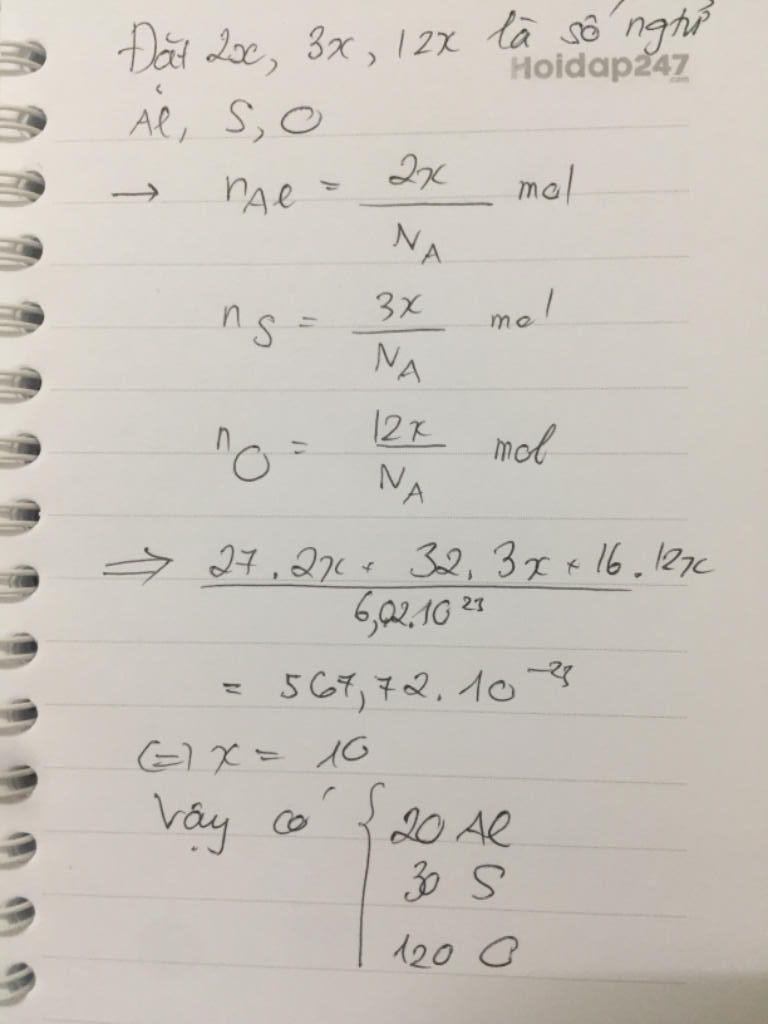 Đặt 2x, 3x, 12x là số ngtử
Hoidap247
.com
Al, S, O
→ nAl = 2x / NA mol
nS = 3x / NA mol
nO = 12x / NA mol
⇒ 27.2x + 32.3x + 16.12x / 6,02.10^23
= 567,72.10^-23
(=) x = 10
Vậy có { 20 Al
30 S
120 O